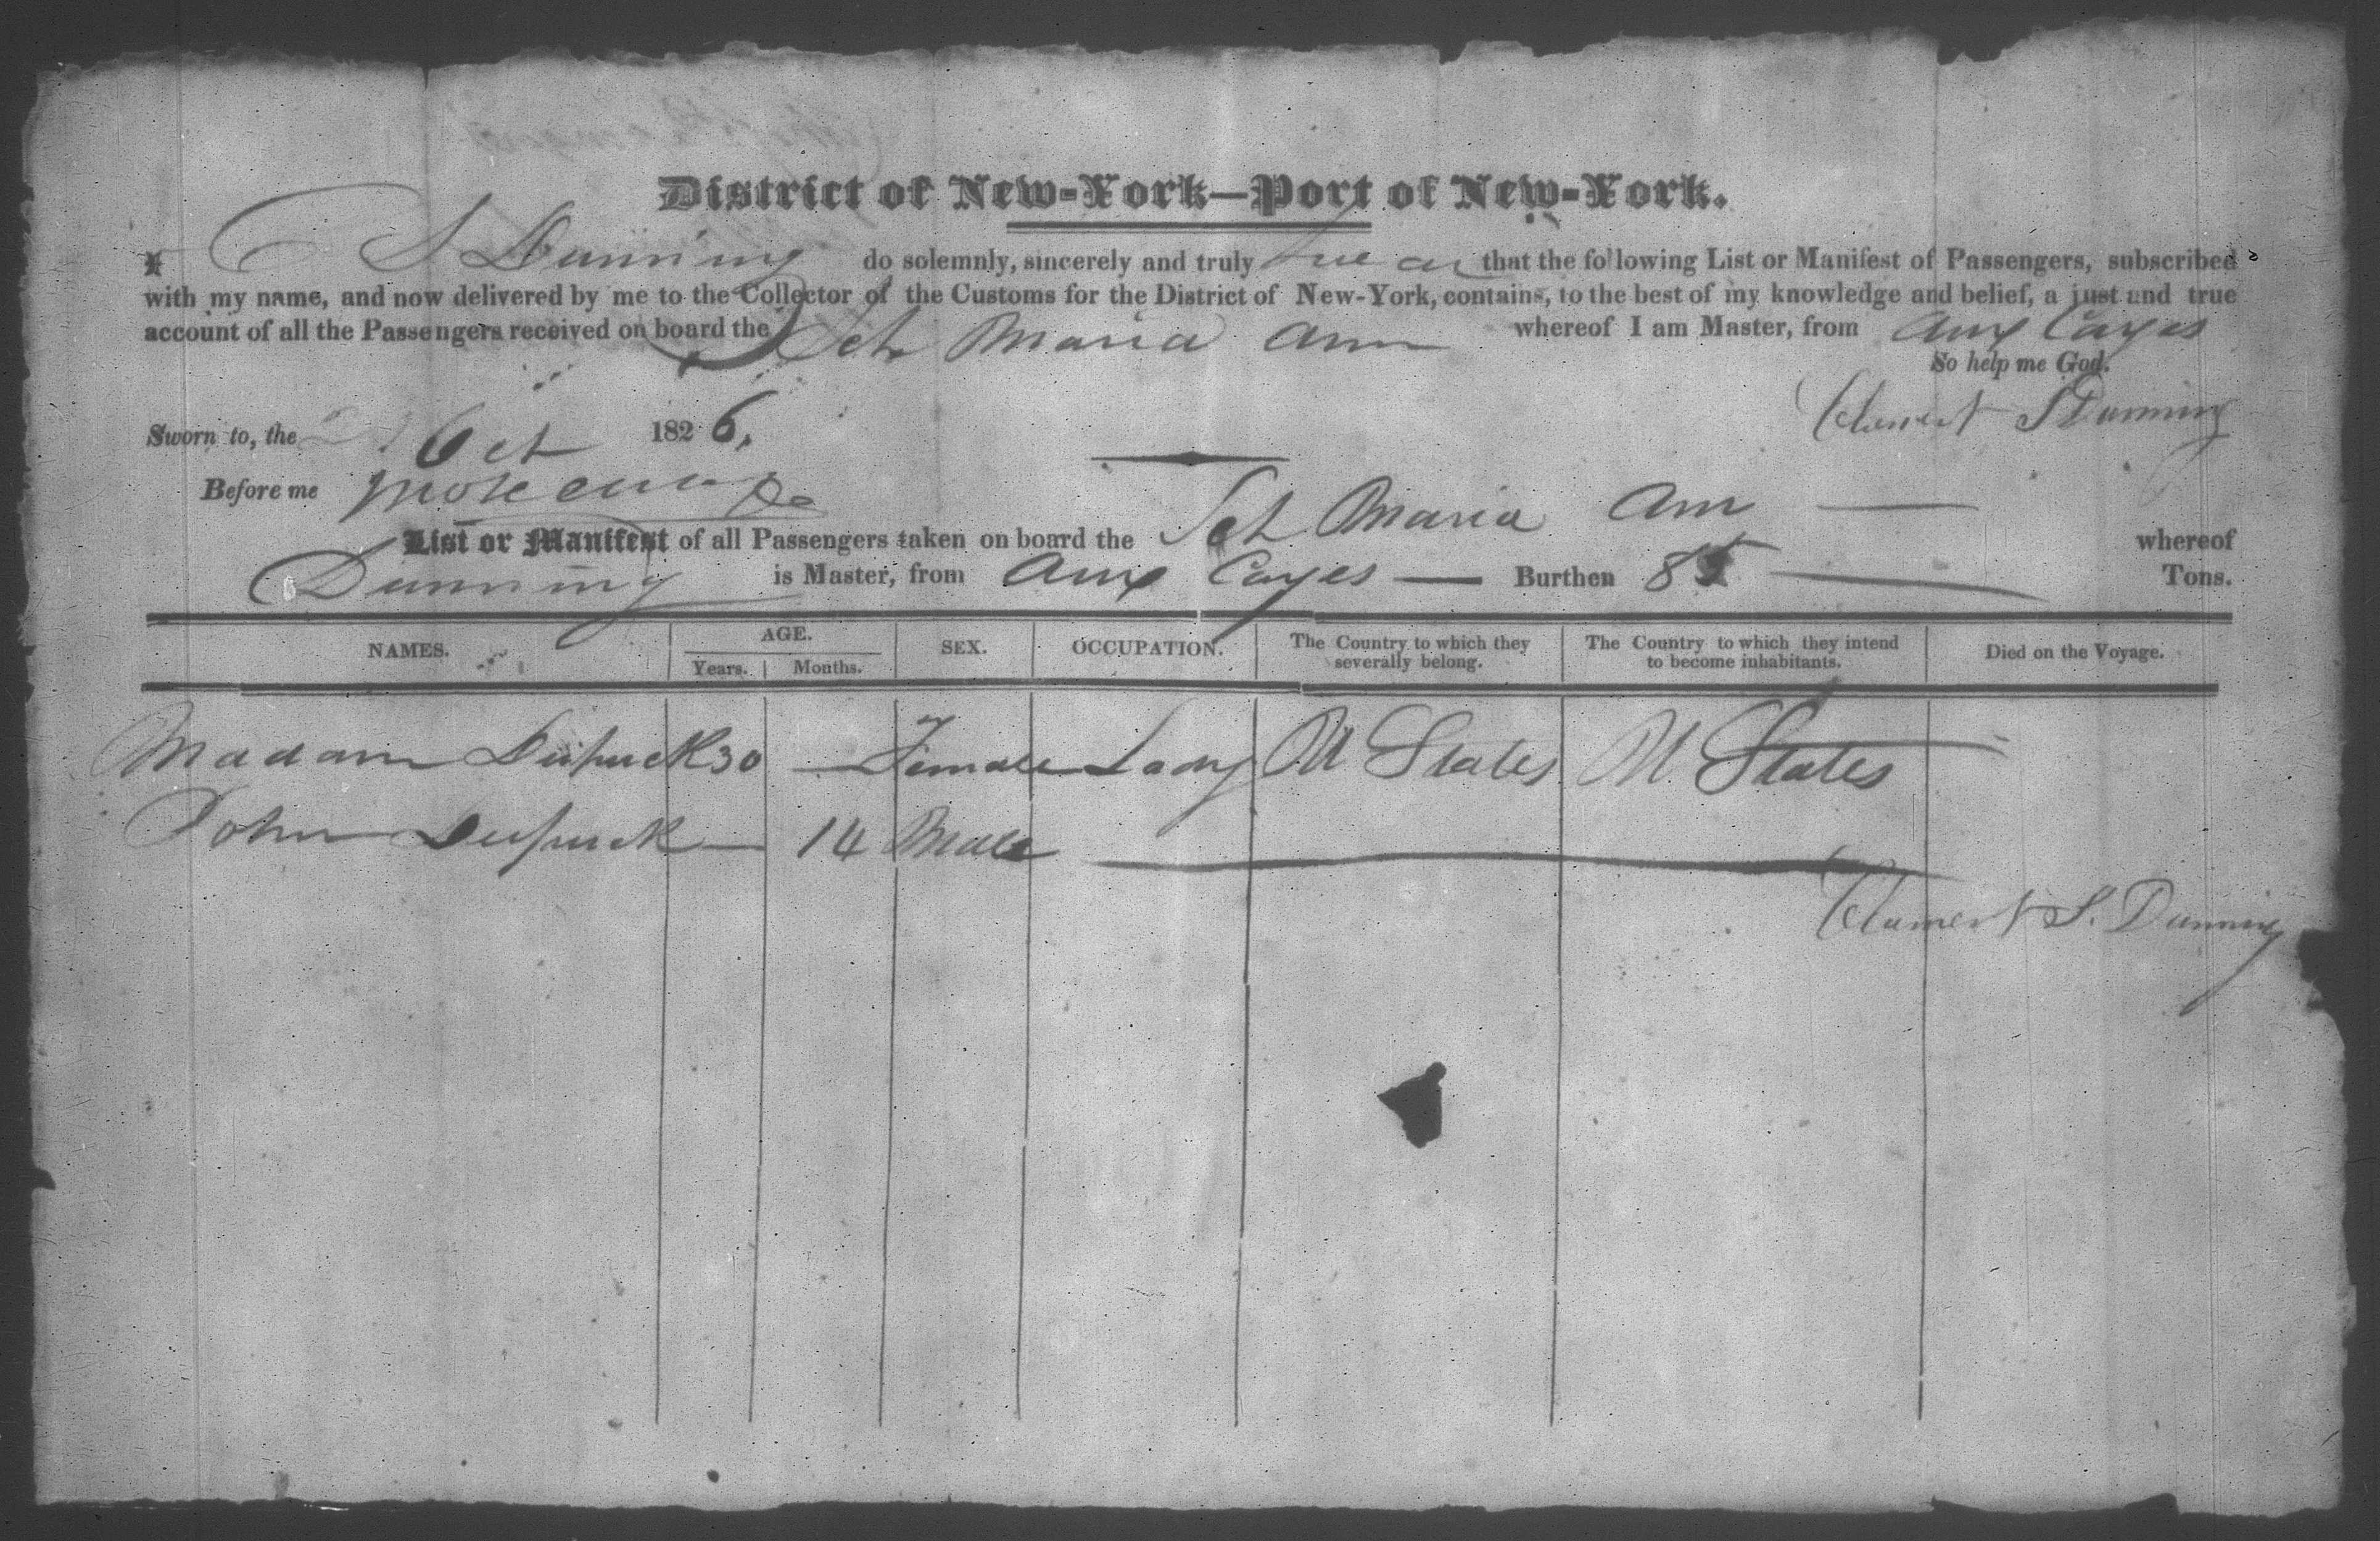 District of New-York—Port of New-York.
I C S Dunning do solemnly, sincerely and truly swear that the following List or Manifest of Passengers, subscribed
with my name, and now delivered by me to the Collector of the Customs for the District of New-York, contains, to the best of my knowledge and belief, a just and true
account of all the Passengers received on board the Sch Maria Ann whereof I am Master, from Aux Cayes
So help me God.
Sworn to, the Oct 1826.
Clement S Dunning
Before me
List or Manifest of all Passengers taken on board the Sch Maria Ann — whereof
Dunning is Master, from Aux Cayes — Burthen 85 Tons.
NAMES. AGE. SEX. OCCUPATION. The Country to which they severally belong. The Country to which they intend to become inhabitants. Died on the Voyage.
Years. Months.
Madam Dupuck 30 — Female Lady U States U States
John Dupuck — 14 Male
Clement S. Dunning